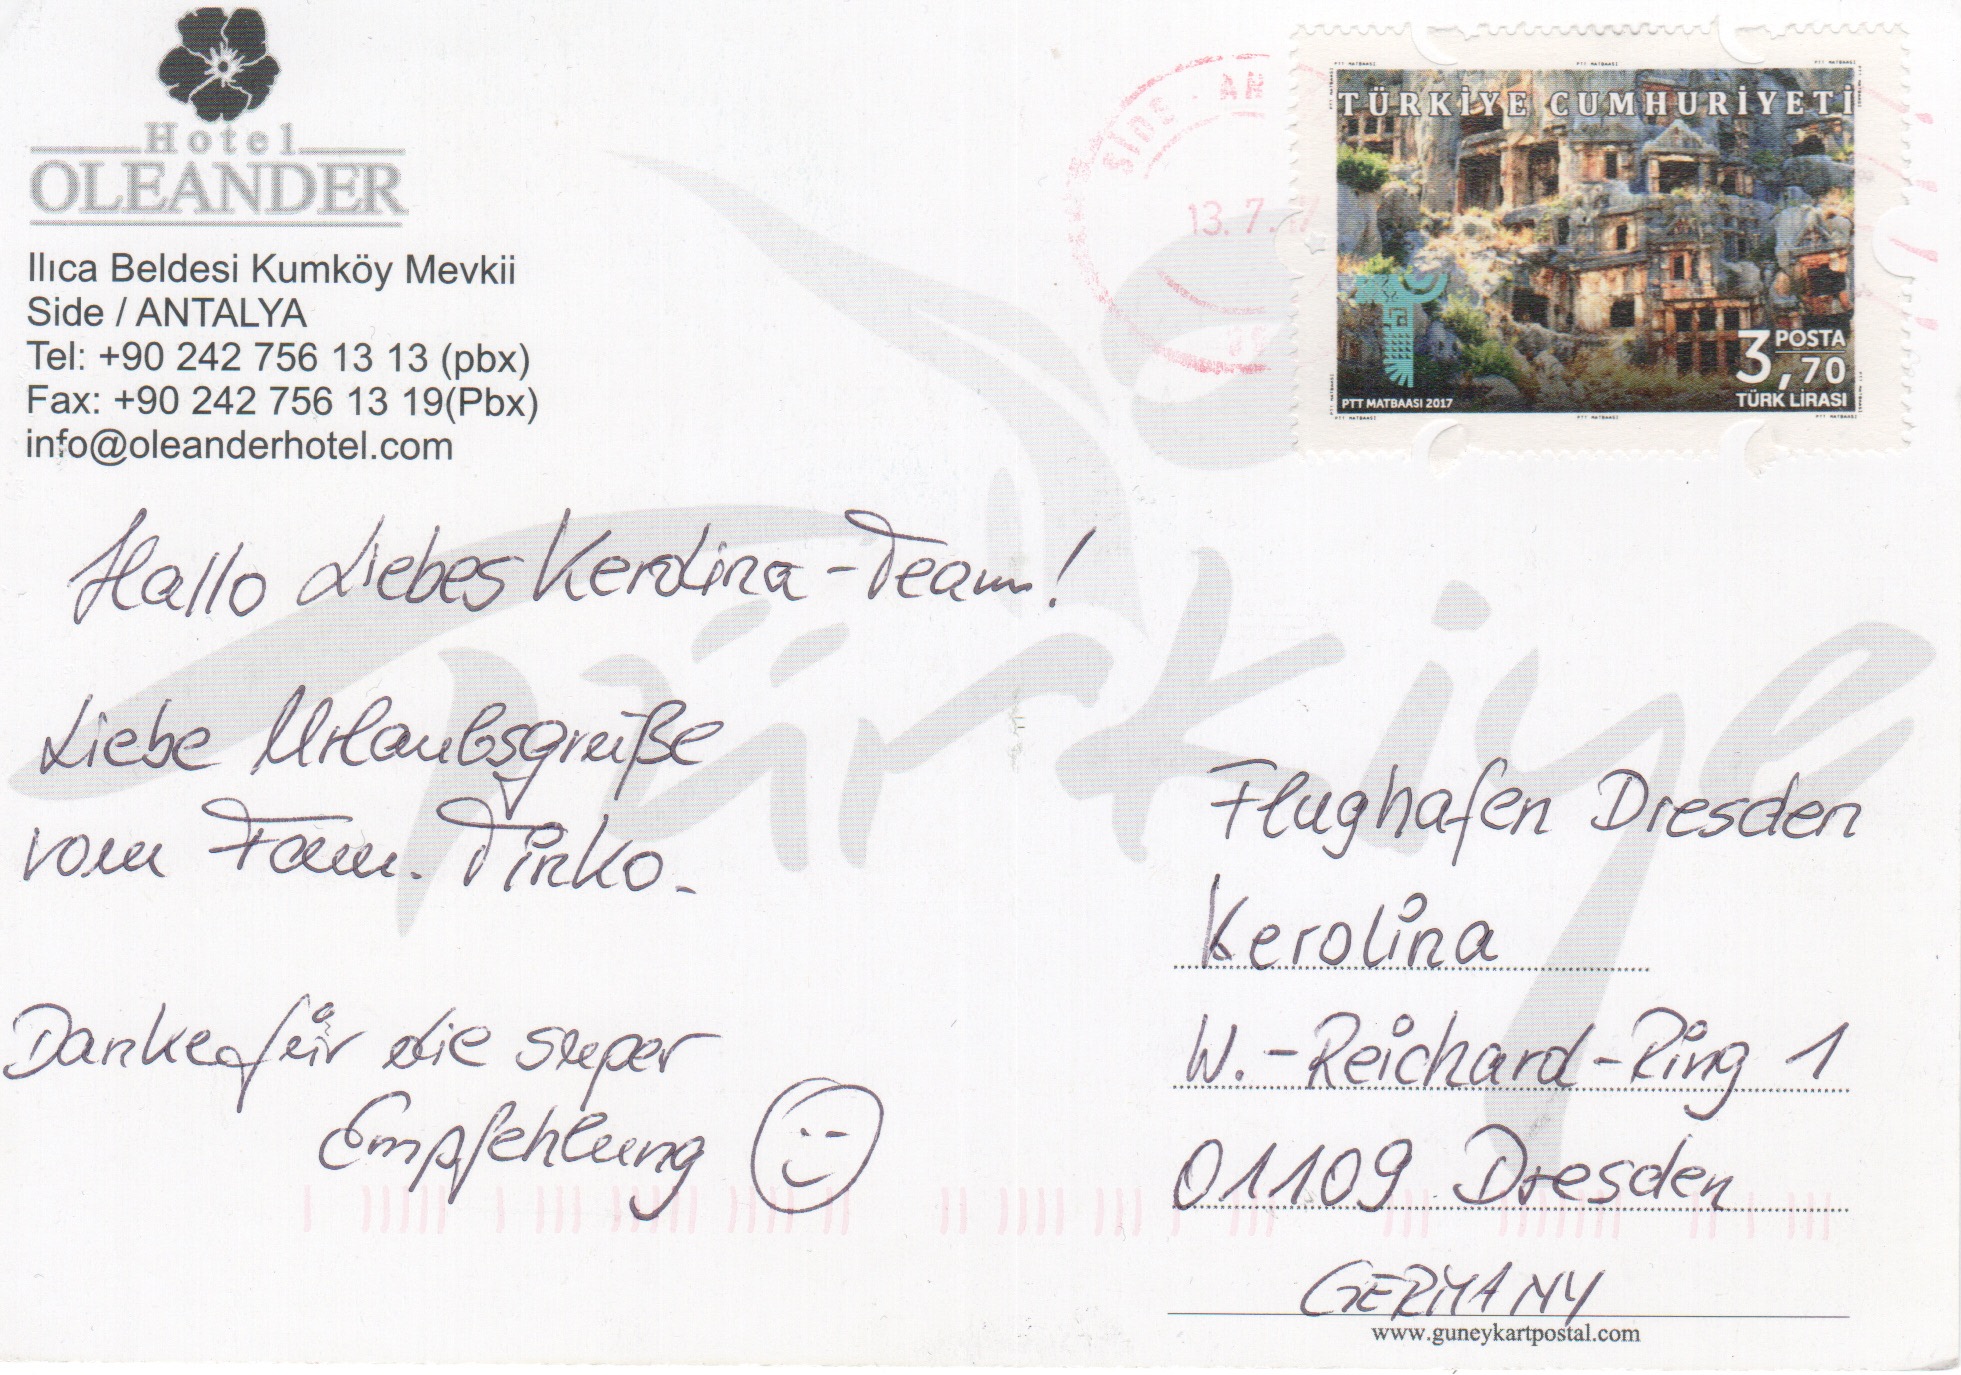 Hotel
OLEANDER
Ilıca Beldesi Kumköy Mevkii
Side / ANTALYA
Tel: +90 242 756 13 13 (pbx)
Fax: +90 242 756 13 19(Pbx)
info@oleanderhotel.com
SİDE - AN
13.7.17
PTT MATBAASI PTT MATBAASI PTT MATBAASI
TÜRKİYE CUMHURİYETİ
3,70
POSTA
TÜRK LİRASI
PTT MATBAASI 2017
PTT MATBAASI PTT MATBAASI PTT MATBAASI
Türkiye
Hallo Liebes Kerolina-Team!
Liebe Urlaubsgrüße
vom Fam. Tirko.
Danke für die super
Empfehlung
Flughafen Dresden
Kerolina
W.-Reichard-Ring 1
01109 Dresden
GERMANY
www.guneykartpostal.com